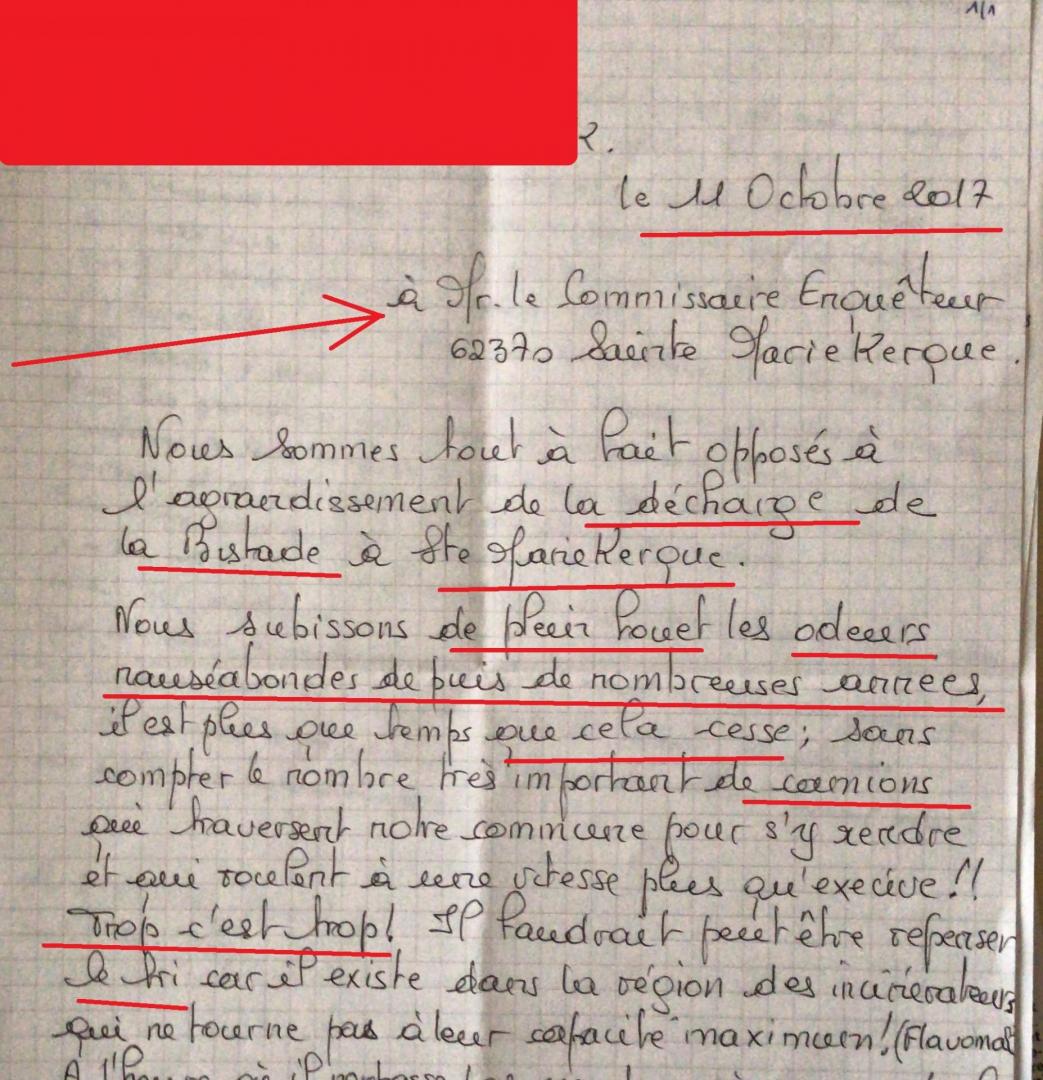 1/1
2.
le 11 Octobre 2017
à Mr. le Commissaire Enquêteur
62370 Sainte Marie Kerque.
Nous sommes tout à fait opposés à
l'agrandissement de la décharge de
la Bistade à Ste Marie Kerque.
Nous subissons de plein fouet les odeurs
nauséabondes depuis de nombreuses années,
il est plus que temps que cela cesse; sans
compter le nombre très important de camions
qui traversent notre commune pour s'y rendre
et qui roulent à une vitesse plus qu'execive!!
Trop c'est trop! Il faudrait peut être repenser
le tri car il existe dans la région des incinérateurs
qui ne tourne pas à leur capacité maximum! (Flavoma
A l'heure où il